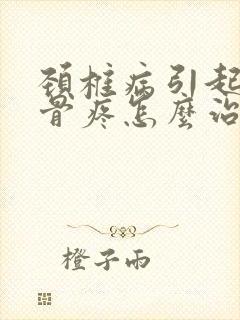 颈椎病引起
骨疼怎麼治
橙子雨